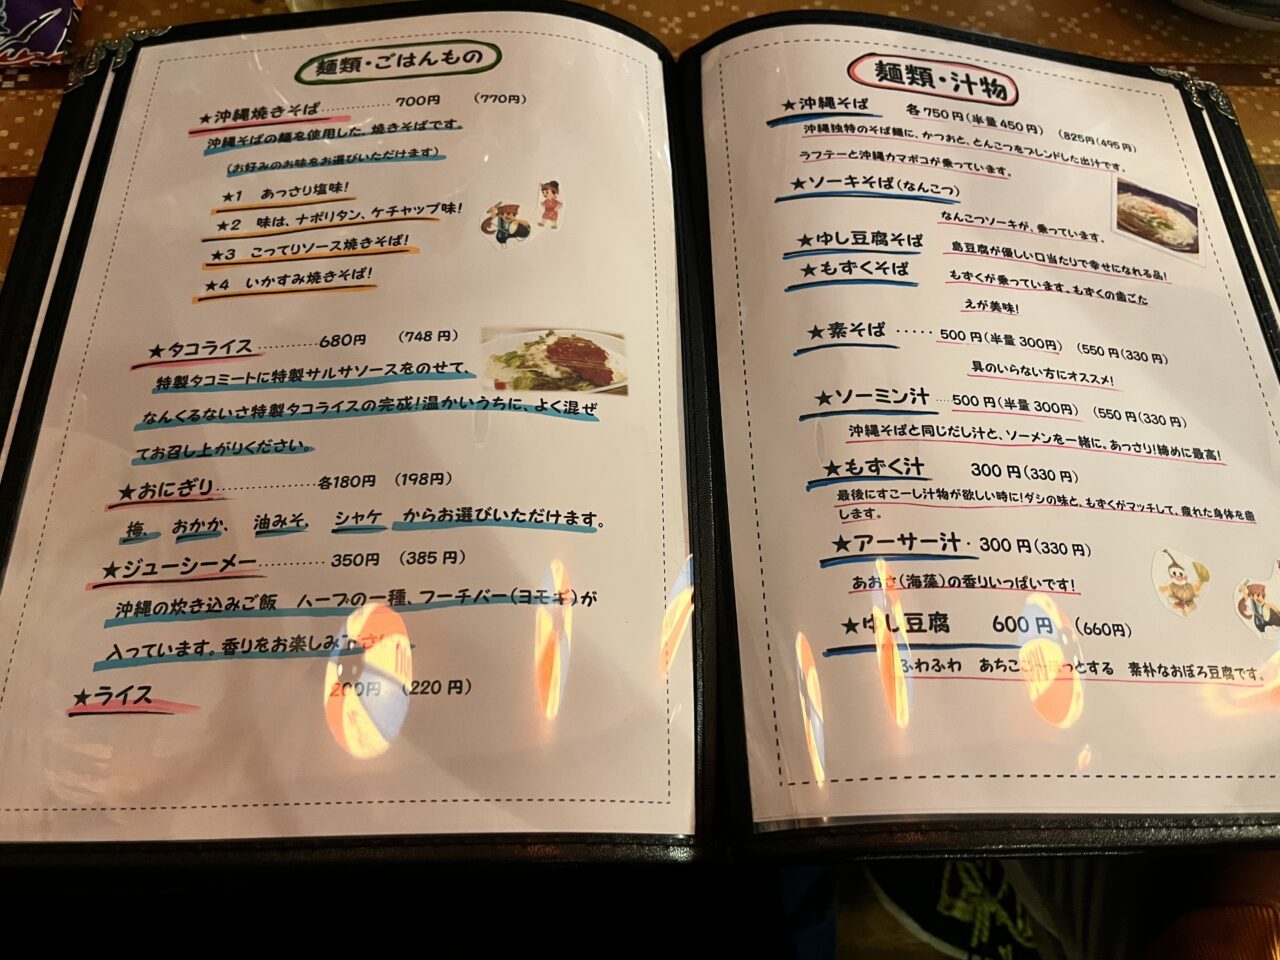 麺類・ごはんもの
★沖縄焼きそば............ 700円 （770円）
沖縄そばの麺を使用した、焼きそばです。
（お好みのお味をお選びいただけます）
★1 あっさり塩味！
★2 味は、ナポリタン、ケチャップ味！
★3 こってりソース焼きそば！
★4 いかすみ焼きそば！
★タコライス............680円 （748円）
特製タコミートに特製サルサソースをのせて、
なんくるないさ特製タコライスの完成！温かいうちに、よく混ぜ
てお召し上がりください。
★おにぎり..................各180円 （198円）
梅、 おかか、 油みそ、 シャケ からお選びいただけます。
★ジューシーメー............ 350円 （385円）
沖縄の炊き込みご飯 ハーブの一種、フーチバー（ヨモギ）が
入っています。香りをお楽しみ下さい
★ライス 200円 （220円）
麺類・汁物
★沖縄そば 各750円（半量450円） （825円（495円）
沖縄独特のそば麺に、かつおと、とんこつをブレンドした出汁です。
ラフテーと沖縄カマボコが乗っています。
★ソーキそば（なんこつ）
なんこつソーキが、乗っています。
★ゆし豆腐そば 島豆腐が優しい口当たりで幸せになれる品！
★もずくそば もずくが乗っています、もずくの歯ごた
えが美味！
★素そば ・・・・・ 500円（半量300円） （550円（330円）
具のいらない方にオススメ！
★ソーミン汁....500円（半量300円） （550円（330円）
沖縄そばと同じだし汁と、ソーメンを一緒に。あっさり！締めに最高！
★もずく汁 300円（330円）
最後にすこーし汁物が欲しい時に！ダシの味と、もずくがマッチして、疲れた身体を癒
します。
★アーサー汁・300円（330円）
あおさ（海藻）の香りいっぱいです！
★ゆし豆腐 600円 （660円）
ふわふわ あちこーこーほっとする 素朴なおぼろ豆腐です。